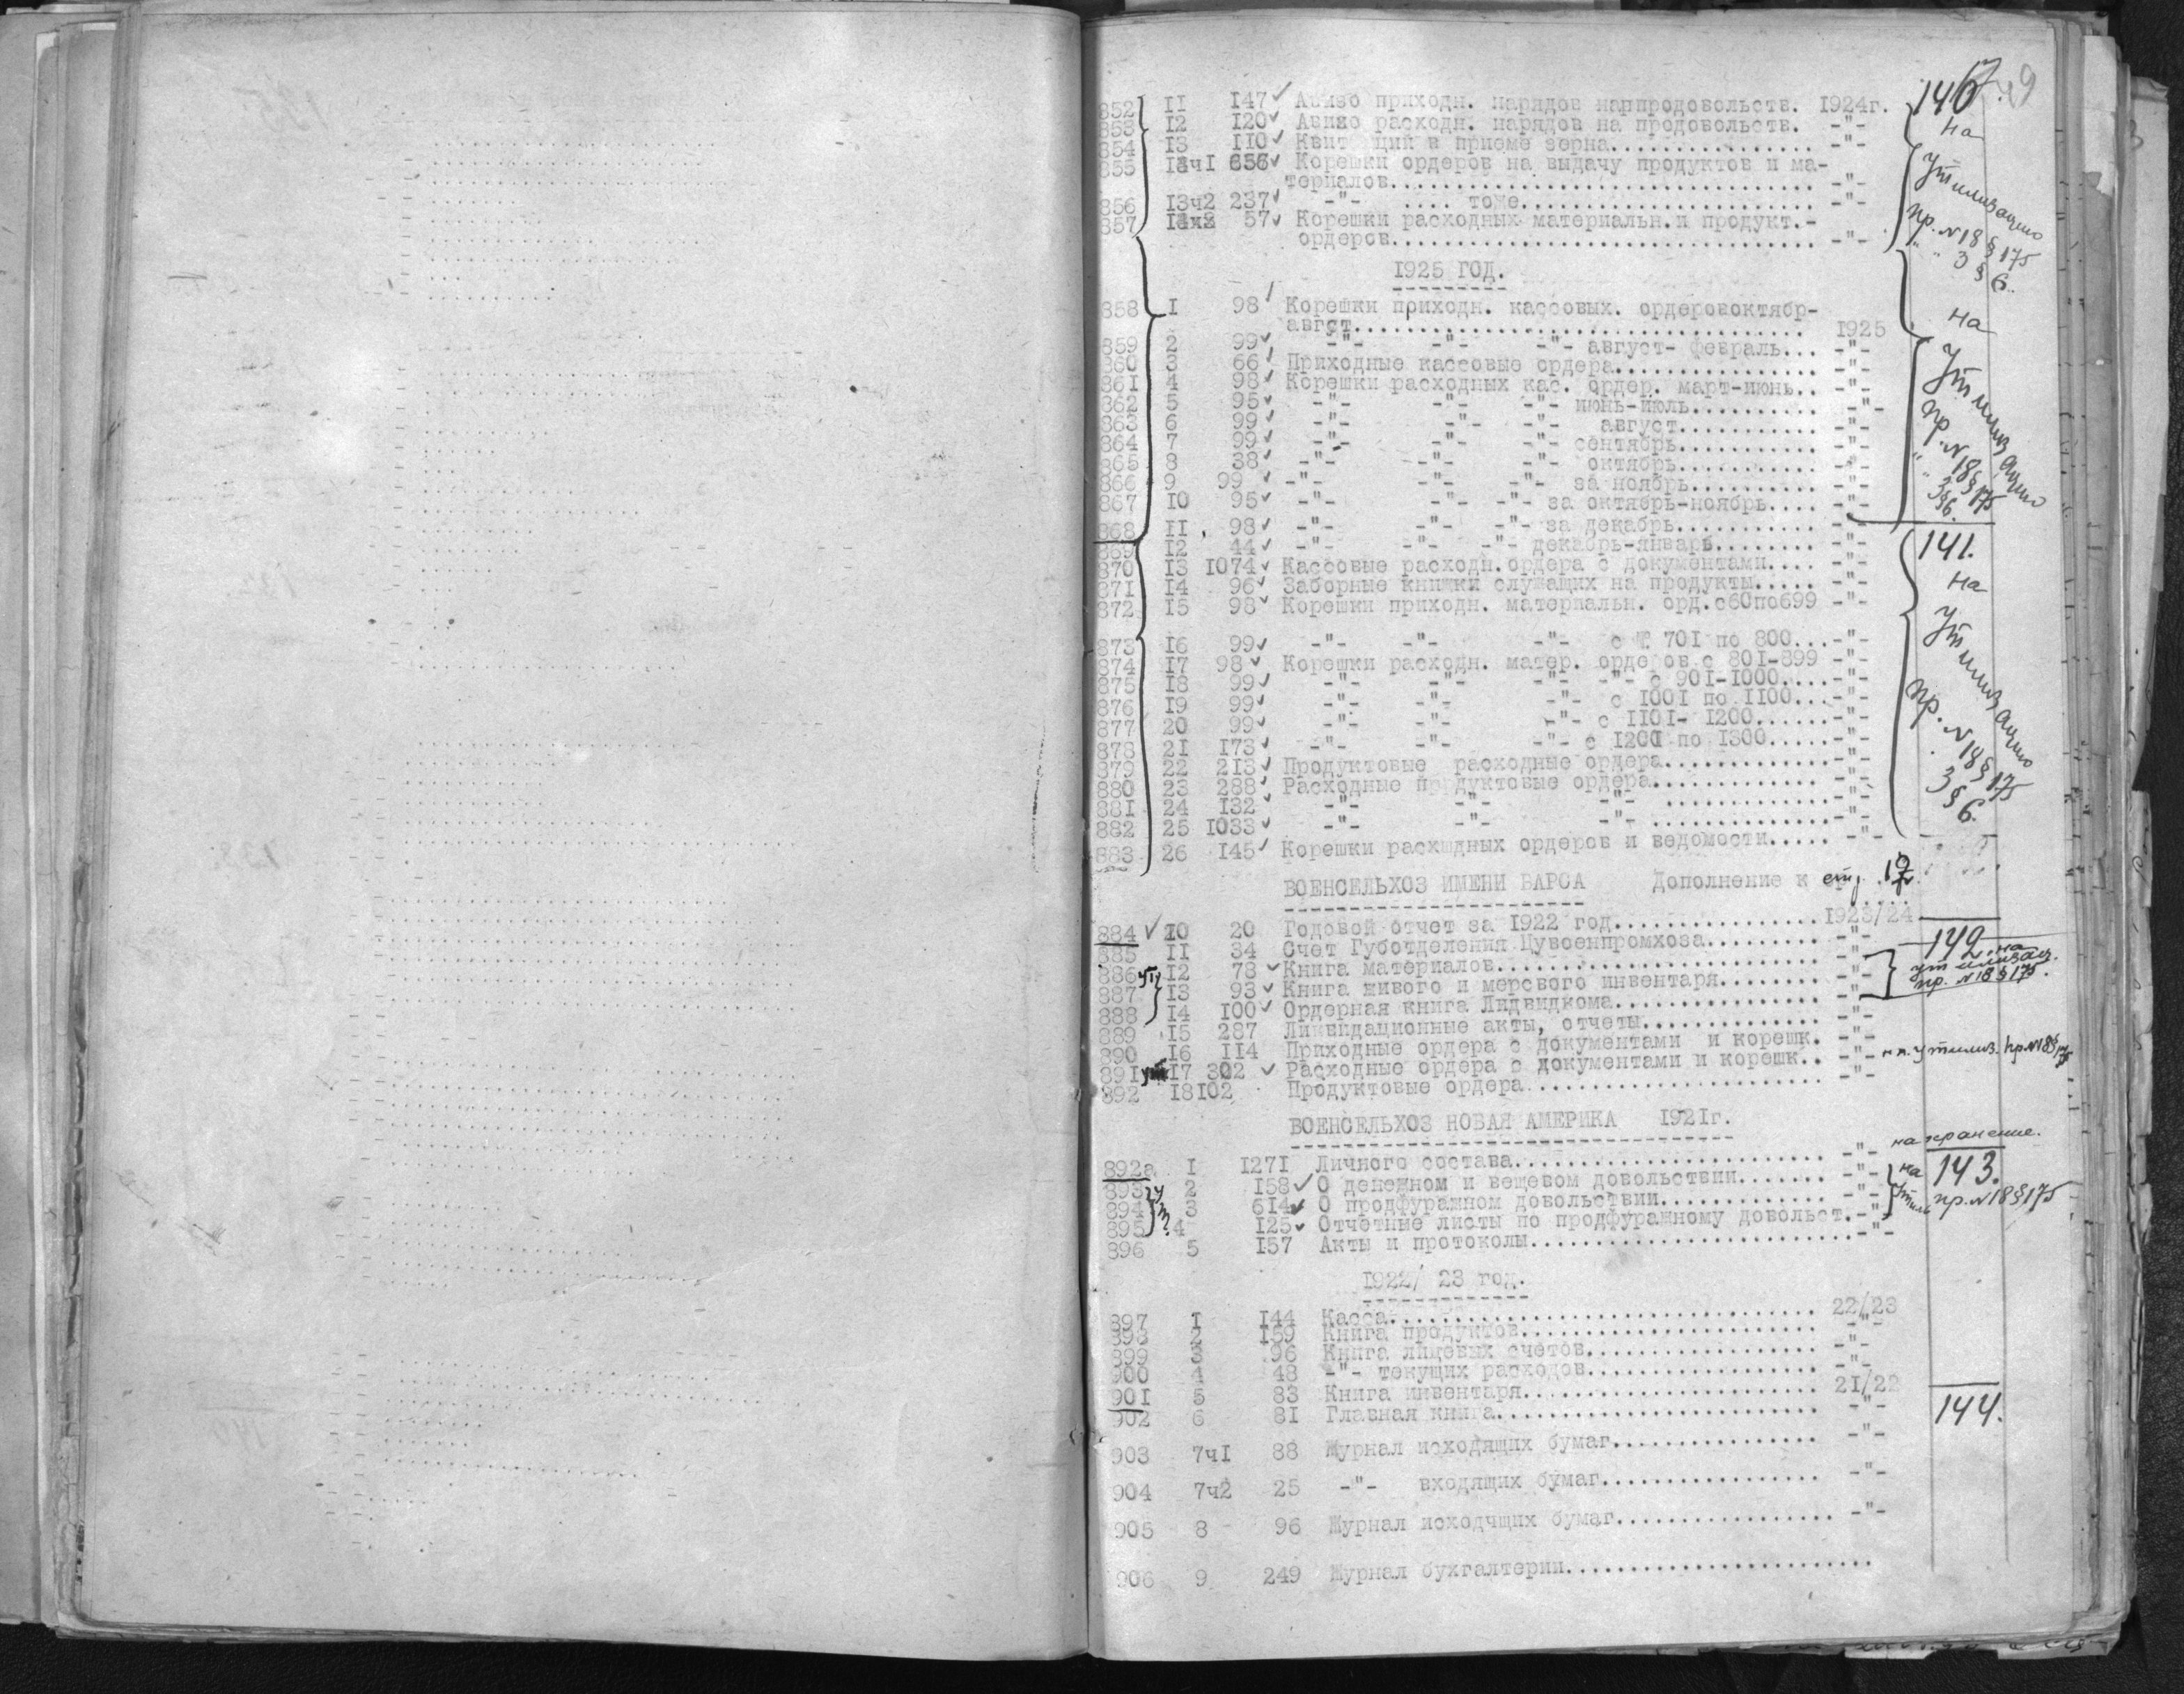 140. 49
852 II 147 Авизо приходн. нарядов напродовольств. 1924г.
853 12 120 Авизо расходн. нарядов на продовольств. -"-
854 13 110 Квит ций в приеме зерна................ -"-
855 13ч1 656 Корешки ордеров на выдачу продуктов и ма-
териалов................................ -"-
856 13ч2 237 -"- .... тоже...................... -"-
857 57 Корешки расходных материальн.и продукт.-
ордеров................................ -"-
на
утилизацию
пр. №18 § 175
" 3 § 6.
1925 ГОД.
858 I 98 Корешки приходн. кассовых. ордеровоктябр-
авгст................................ 1925
859 2 99 -"- -"- -"- август- февраль... -"-
860 3 66 Приходные кассовые ордера................ -"-
861 4 98 Корешки расходных кас. ордер. март-июнь.. -"-
862 5 95 -"- -"- -"- июнь-июль.......... -"-
863 6 99 -"- -"- -"- август........... -"-
864 7 99 -"- -"- -"- сентябрь........... -"-
865 8 38 -"- -"- -"- октябрь........... -"-
866 9 99 -"- -"- -"- за ноябрь.......... -"-
867 10 95 -"- -"- -"- за октябрь-ноябрь.... -"-
868 II 98 -"- -"- -"- за декабрь........... -"-
на
утилизацию
пр. №18 § 175
" 3 § 6.
869 12 44 -"- -"- -"- декабрь-январь........ -"-
141.
870 13 1074 Кассовые расходн.ордера с документами.... -"-
871 14 96 Заборные книжки служащих на продукты..... -"-
872 15 98 Корешки приходн. материальн. орд.с60по699 -"-
873 16 99 -"- -"- -"- с 701 по 800...-"-
874 17 98 Корешки расходн. матер. ордеров с 801-899 -"-
875 18 99 -"- -"- -"- -"- с 901-1000....-"-
876 19 99 -"- -"- -"- с 1001 по 1100...-"-
877 20 99 -"- -"- -"- с 1101- 1200......-"-
878 21 173 -"- -"- -"- с 1201 по 1300.....-"-
879 22 213 Продуктовые расходные ордера..............-"-
880 23 288 Расходные пр дуктовые ордера............. -"-
881 24 132 -"- -"- -"- ..............-"-
882 25 1033 -"- -"- -"- ...............-"-
883 26 145 Корешки расхшдных ордеров и ведомости..... -"-
на
утилизацию
пр. №18 § 175
3 § 6.
ВОЕНСЕЛЬХОЗ ИМЕНИ ВАРСА Дополнение к стр.
884 10 20 Годовой отчет за 1922 год................ 1923/24
885 II 34 Счет Губотделения Цувоенпромхоза......... -"-
142.
886 ут 12 78 Книга материалов.......................... -"-
887 13 93 Книга живого и мерсвого инвентаря........ -"-
888 14 100 Ордерная книга Лидвидкома................ -"-
на
утилизац.
пр. №18 § 175.
889 15 287 Ликвидационные акты, отчеты.............. -"-
890 16 114 Приходные ордера с документами и корешк. -"-
891 17 302 Расходные ордера с документами и корешк.. -"- на утилиз. пр.№18§175
892 18 102 Продуктовые ордера........................ -"-
ВОЕНСЕЛЬХОЗ НОВАЯ АМЕРИКА 1921г.
892а I 1271 Личного состава......................... -"- на хранение.
143.
893 2 158 О денежном и вещевом довольствии....... -"-
894 3 614 О продфуражном довольствии.............. -"-
895 4 125 Отчетные листы по продфуражному довольст.-"-
на утиль пр.№18§175
896 5 157 Акты и протоколы..........................-"-
1922/ 23 год.
897 I 144 Касса.................................. 22/23
898 2 159 Книга продуктов........................ -"-
899 3 96 Книга лицевых счетов................... -"-
900 4 48 -"- текущих расходов................... -"-
901 5 83 Книга инвентаря........................ 21/22
902 6 81 Главная книга.......................... -"-
144.
903 7ч1 88 Журнал исходящих бумаг................. -"-
904 7ч2 25 -"- входящих бумаг.................. -"-
905 8 96 Журнал исходчщих бумаг................. -"-
906 9 249 Журнал бухгалтерии.........................